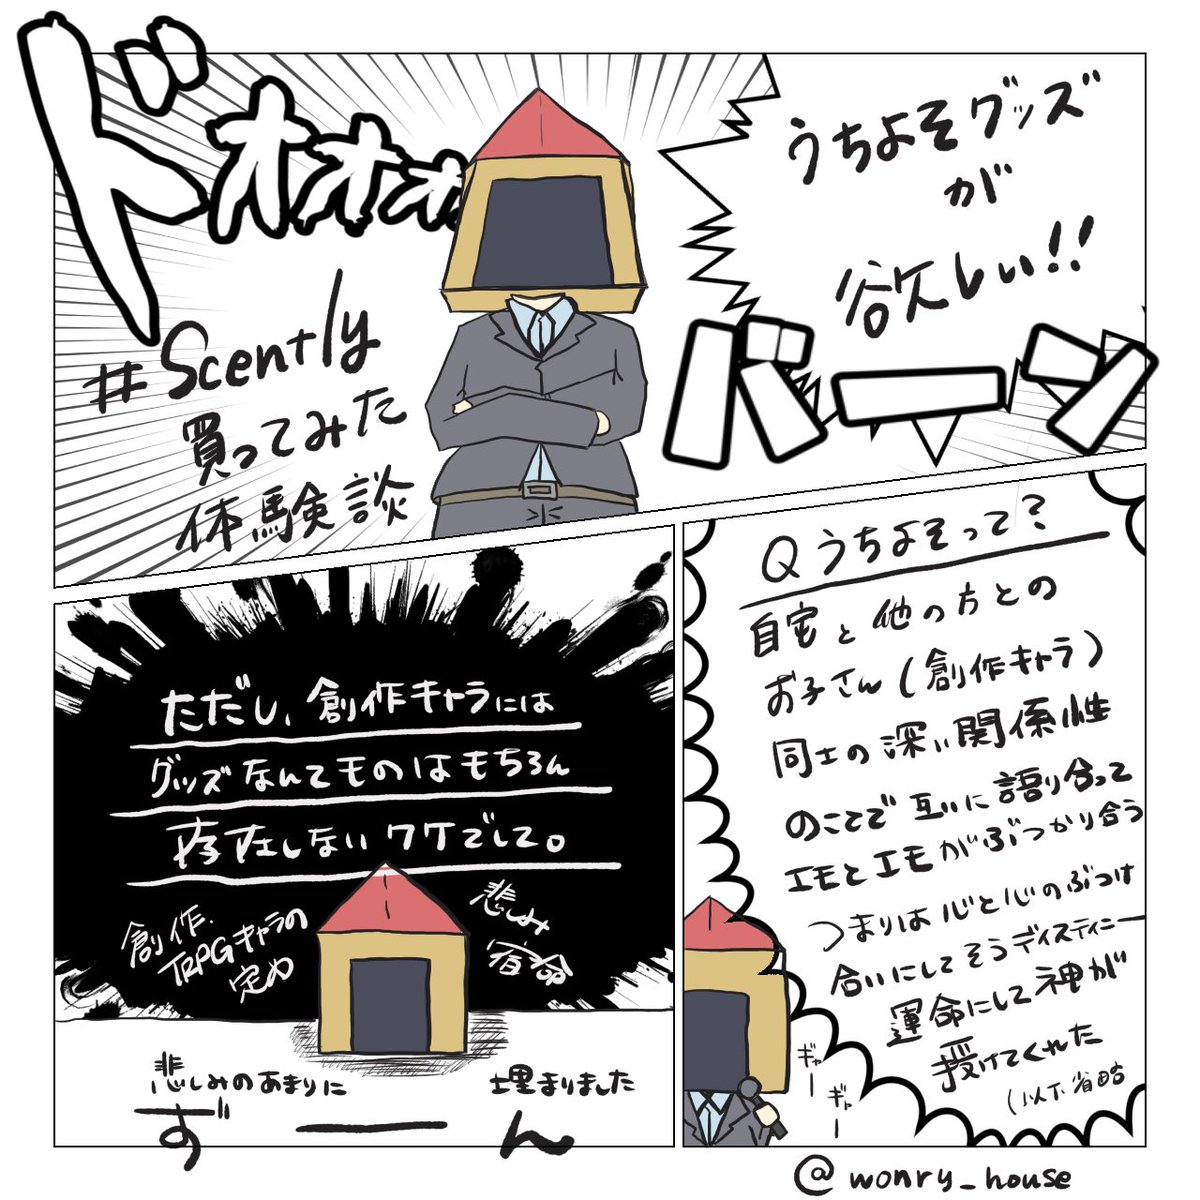 うちよそグッズ
が
欲しい!!
ドォオオォ
バーン
#Scently
買ってみた
体験談
Qうちよそって?
自宅と他の方との
お子さん(創作キャラ)
同士の深い関係性
のことで互いに語り合って
エモとエモがぶつかり合う
つまりは心と心のぶつけ
合いにしてそうディスティニー
運命にして神が
授けてくれた
(以下省略
ギャー
ギャー
ただし、創作キャラには
グッズなんてものはもちろん
存在しないワケでして。
創作・
TRPGキャラの
定め
悲しみ
宿命
悲しみのあまりに
埋まりました
ずーん
@wonry_house